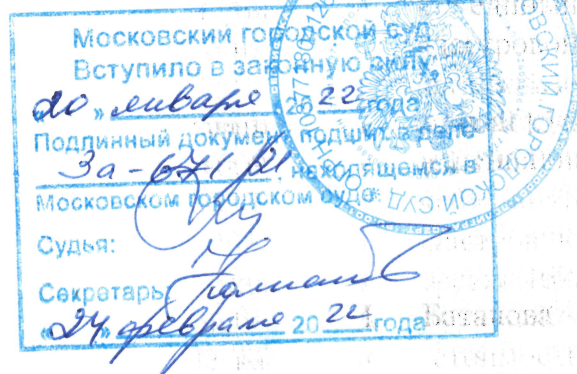 Московский городской суд
Вступило в законную силу
«20» января 2022 года
Подлинный документ подшит в деле
3а-671/21, находящемся в
Московском городском суде
Судья:
Секретарь
«24» февраля 2022 года